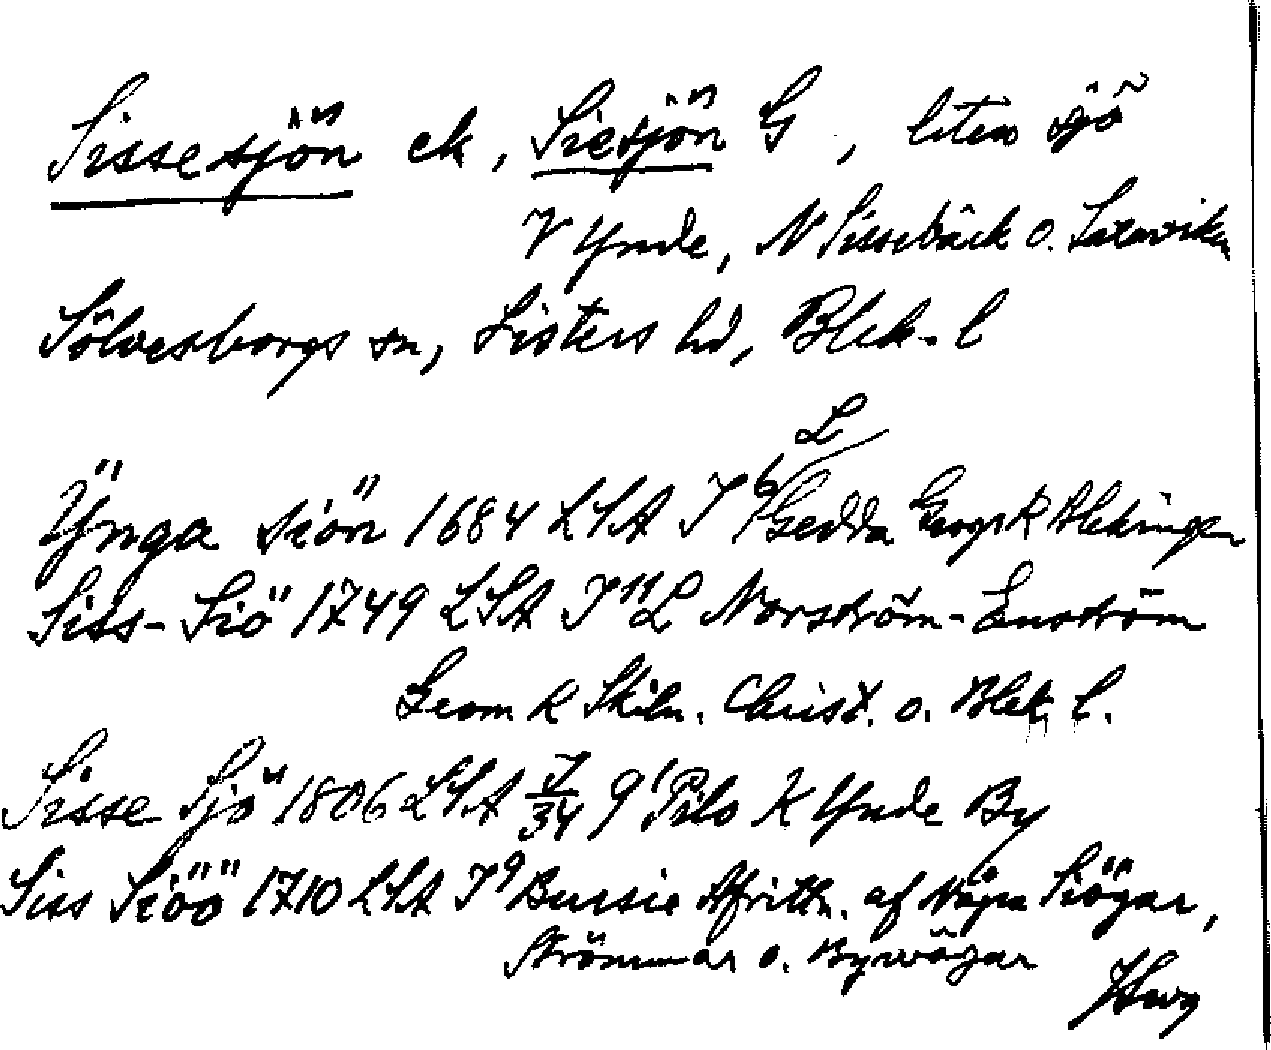 Sissesjön ek, Siesjön G, liten sjö
V Ynde, N Sissebäck o. Sataviken
Sölvesborgs sn, Listers hd, Blek. l
L
Ÿnga siön 1684 LSA J 6 Gedda Geogr K Blekingen
Siss-Siö 1749 LSA J 11 L Norström-Enström
Geom K Skiln. Christ. o. Blek. l.
Sisse Sjö 1806 LSA J/34 9 1 Pilo K Ynde By
Siss Siöö 1710 LSA J 9 Bursie Afrittn. af någre Siögar,
Strömmar o. Byrvägar